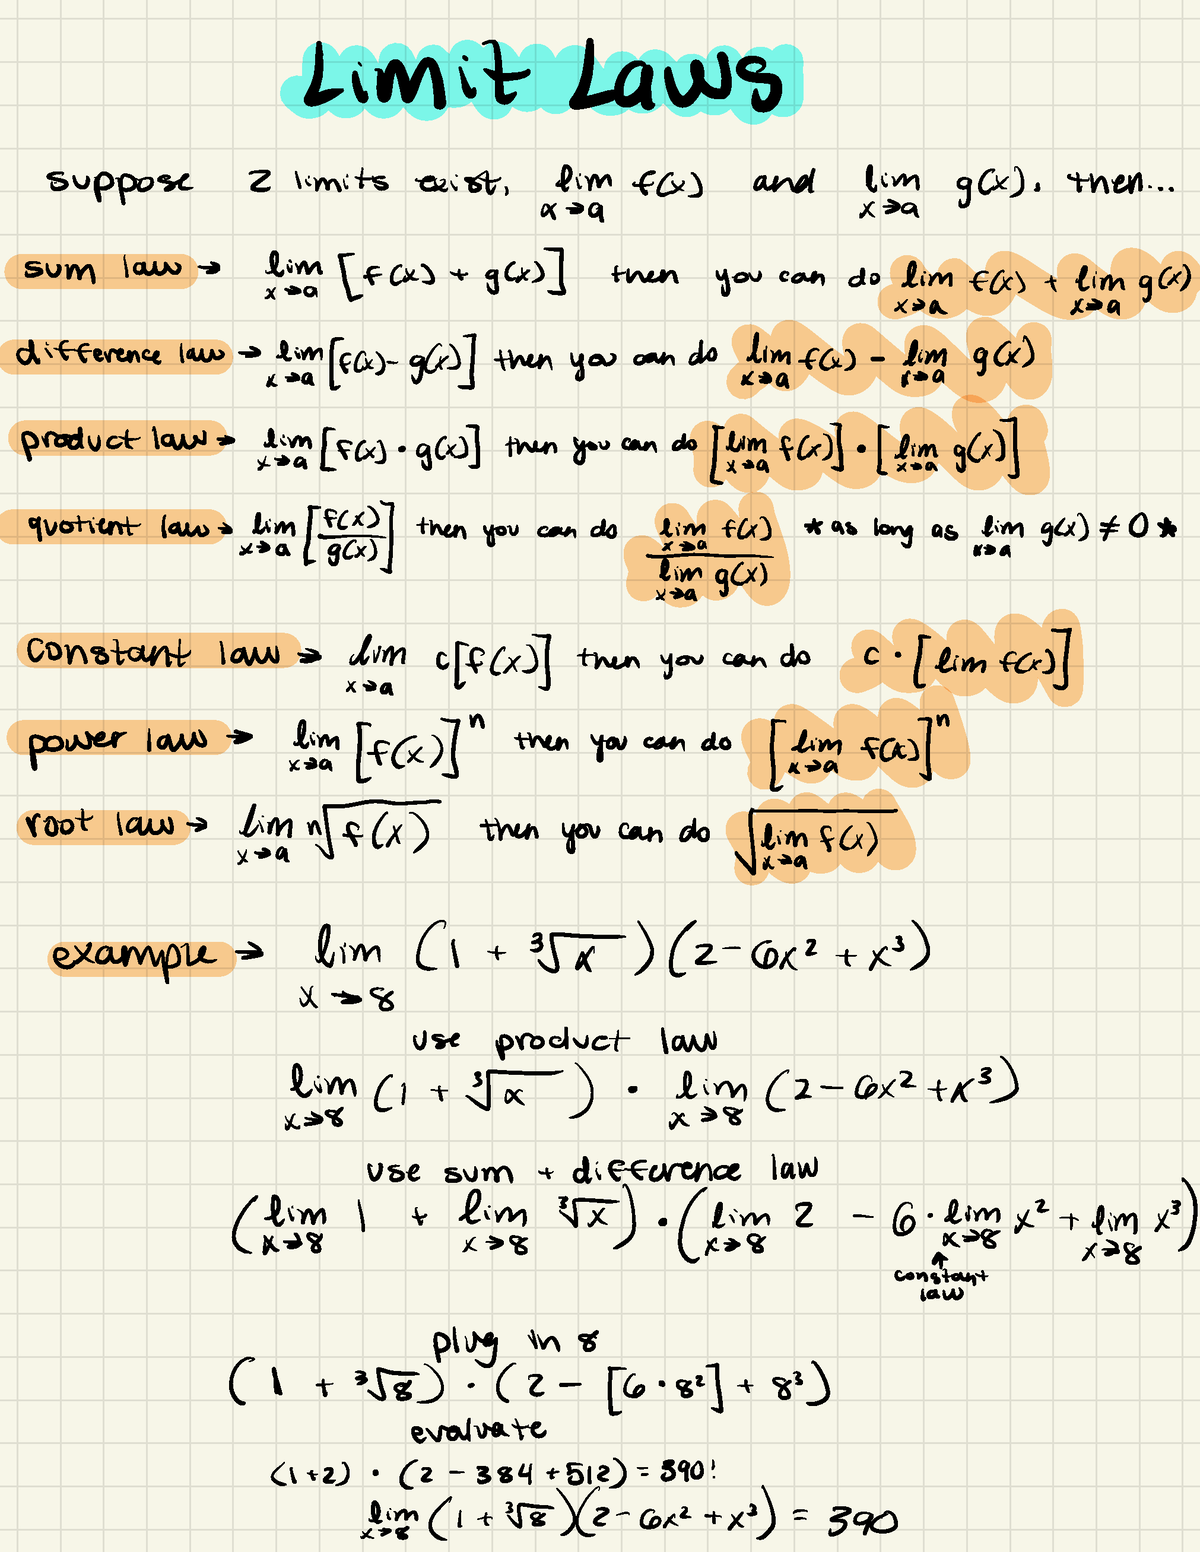 Limit Laws
suppose 2 limits exist, lim x→a f(x) and lim x→a g(x). then...
sum law → lim x→a [f(x) + g(x)] then you can do lim x→a f(x) + lim x→a g(x)
difference law → lim x→a [f(x) - g(x)] then you can do lim x→a f(x) - lim x→a g(x)
product law → lim x→a [f(x) · g(x)] then you can do [lim x→a f(x)] · [lim x→a g(x)]
quotient law → lim x→a [f(x)/g(x)] then you can do lim x→a f(x) / lim x→a g(x) * as long as lim x→a g(x) ≠ 0 *
constant law → lim x→a c[f(x)] then you can do c · [lim f(x)]
power law → lim x→a [f(x)]ⁿ then you can do [lim x→a f(x)]ⁿ
root law → lim x→a ⁿ√f(x) then you can do √lim x→a f(x)
example → lim x→8 (1 + ³√x)(2 - 6x² + x³)
use product law
lim x→8 (1 + ³√x) · lim x→8 (2 - 6x² + x³)
use sum + difference law
(lim x→8 1 + lim x→8 ³√x) · (lim x→8 2 - 6 · lim x→8 x² + lim x→8 x³)
↑
constant
law
plug in 8
(1 + ³√8) · (2 - [6 · 8²] + 8³)
evaluate
(1+2) · (2 - 384 + 512) = 390!
lim x→8 (1 + ³√8)(2 - 6x² + x³) = 390